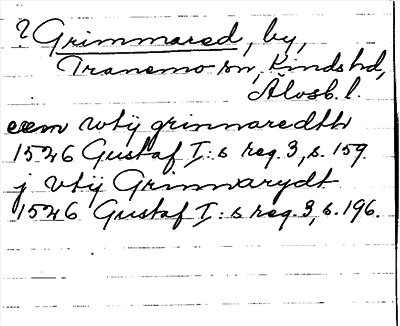 ? Grimmared, by,
Tranemo sn, Kinds hd,
Älvsb. l.
wtij grimmaredth
1526 Gustaf I:s reg. 3, s. 159.
j vtij Grimmarydt
1526 Gustaf I:s reg. 3, s. 196.